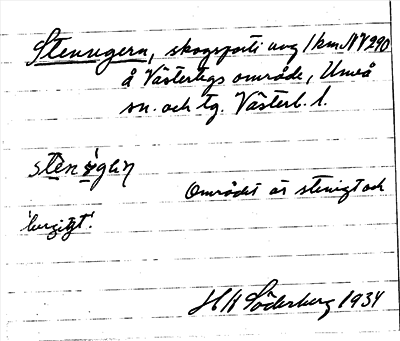 Stenugern, skogsparti avg 1 km NV 290
å Västertegs område, Umeå
sn. och tg. Västerb. l.
Området är stenigt och
'bergigt'.
H H Söderberg 1934